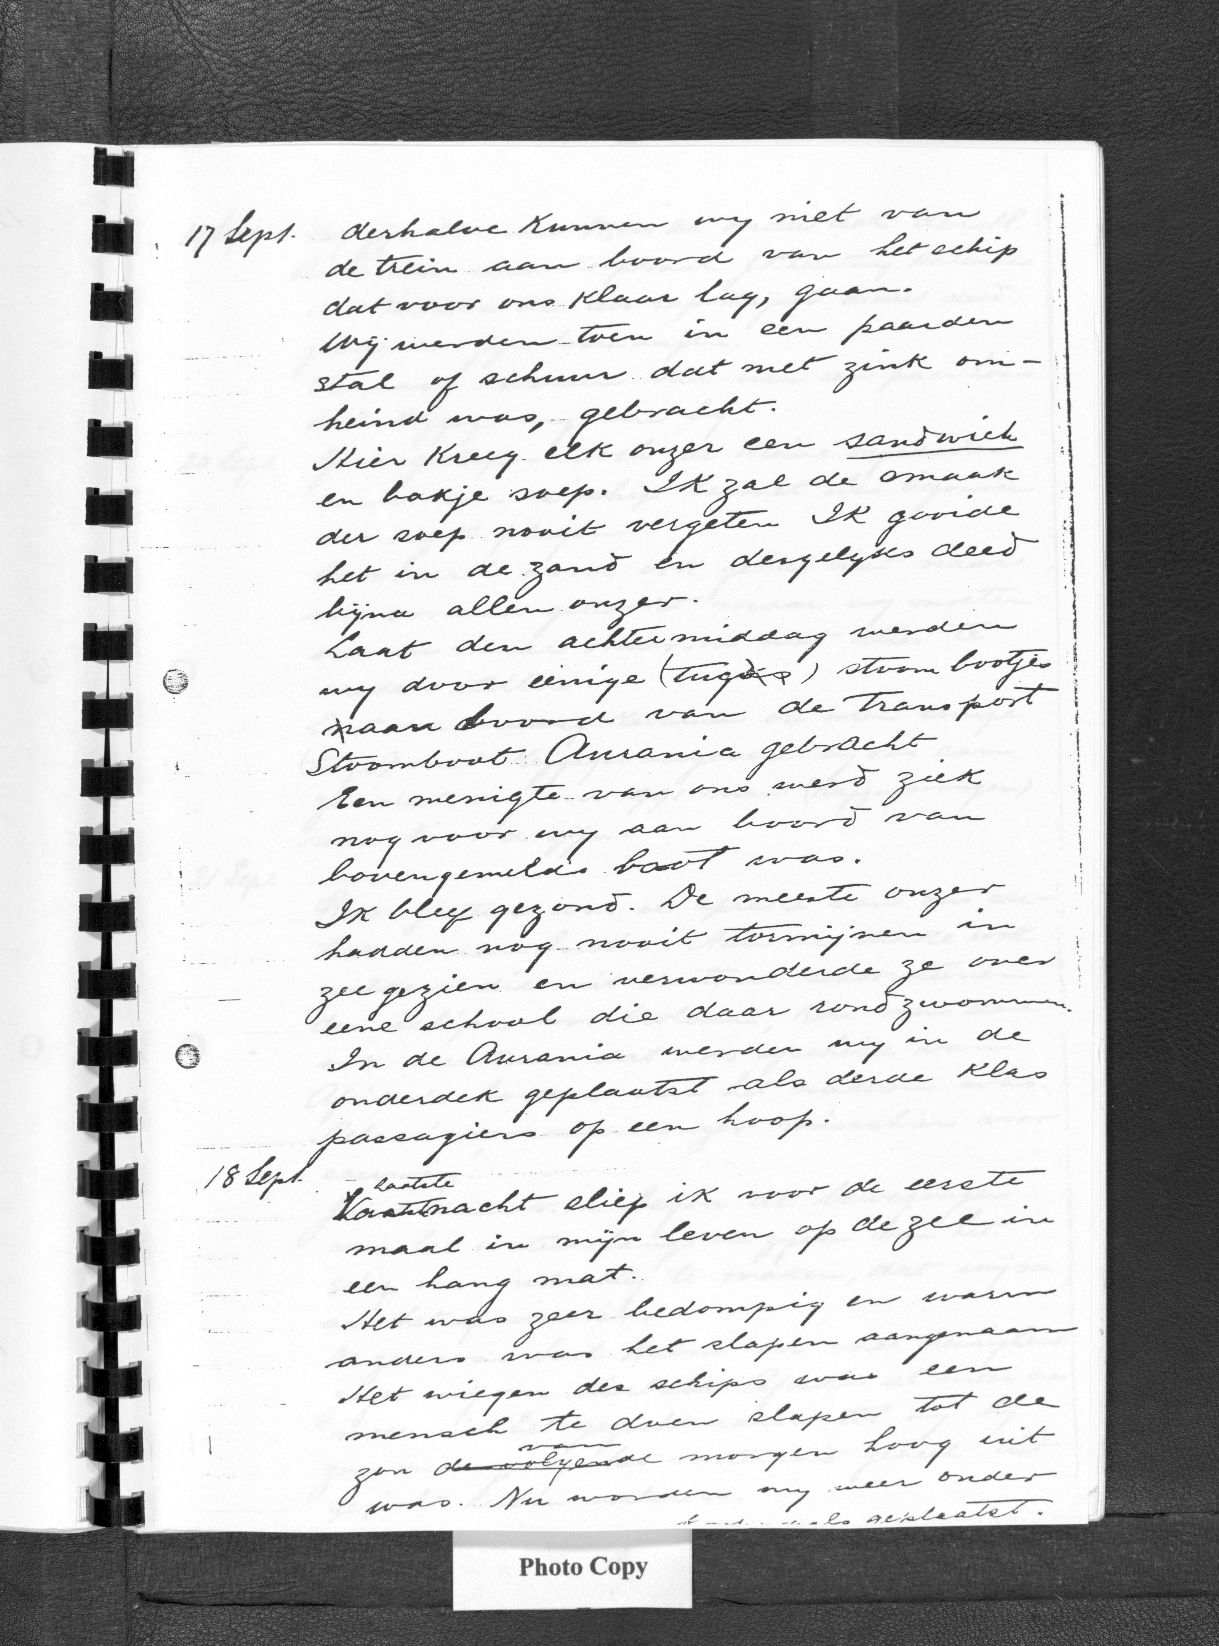 17 Sept. derhalve kunnen wy niet van
de trein aan boord van het schip
dat voor ons klaar lag, gaan.
Wij werden toen in een paarden
stal of schuur dat met zink om-
heind was, gebracht.
Hier kreeg elk onzer een sandwich
en bakje soep. Ik zal de smaak
der soep nooit vergeten Ik gooide
het in de zand en desgelyks deed
bijna allen onzer.
Laat den achtermiddag werden
wy door eenige (tugs) stoom bootjes
naan boord van de Transport
Stoomboot Aurania gebracht
Een menigte van ons werd ziek
nog voor wy aan boord van
bovengemelds boot was.
Ik bleef gezond. De meeste onzer
hadden nog nooit tormijnen in
zee gezien en verwonderde ze over
eene school die daar rond zwommen.
In de Aurania werden wy in de
onderdek geplaatst als derde klas
passagiers op een hoop.
18 Sept. laatste
nacht sliep ik voor de eerste
maal in mijn leven op de zee in
een hang mat.
Het was zeer bedompig en warm
anders was het slapen aangenaam
Het wiegen des schips was een
mensch te doen slapen tot de
van
zon de volgende morgen hoog uit
was. Nu worden wy weer onder
geplaatst.
Photo Copy